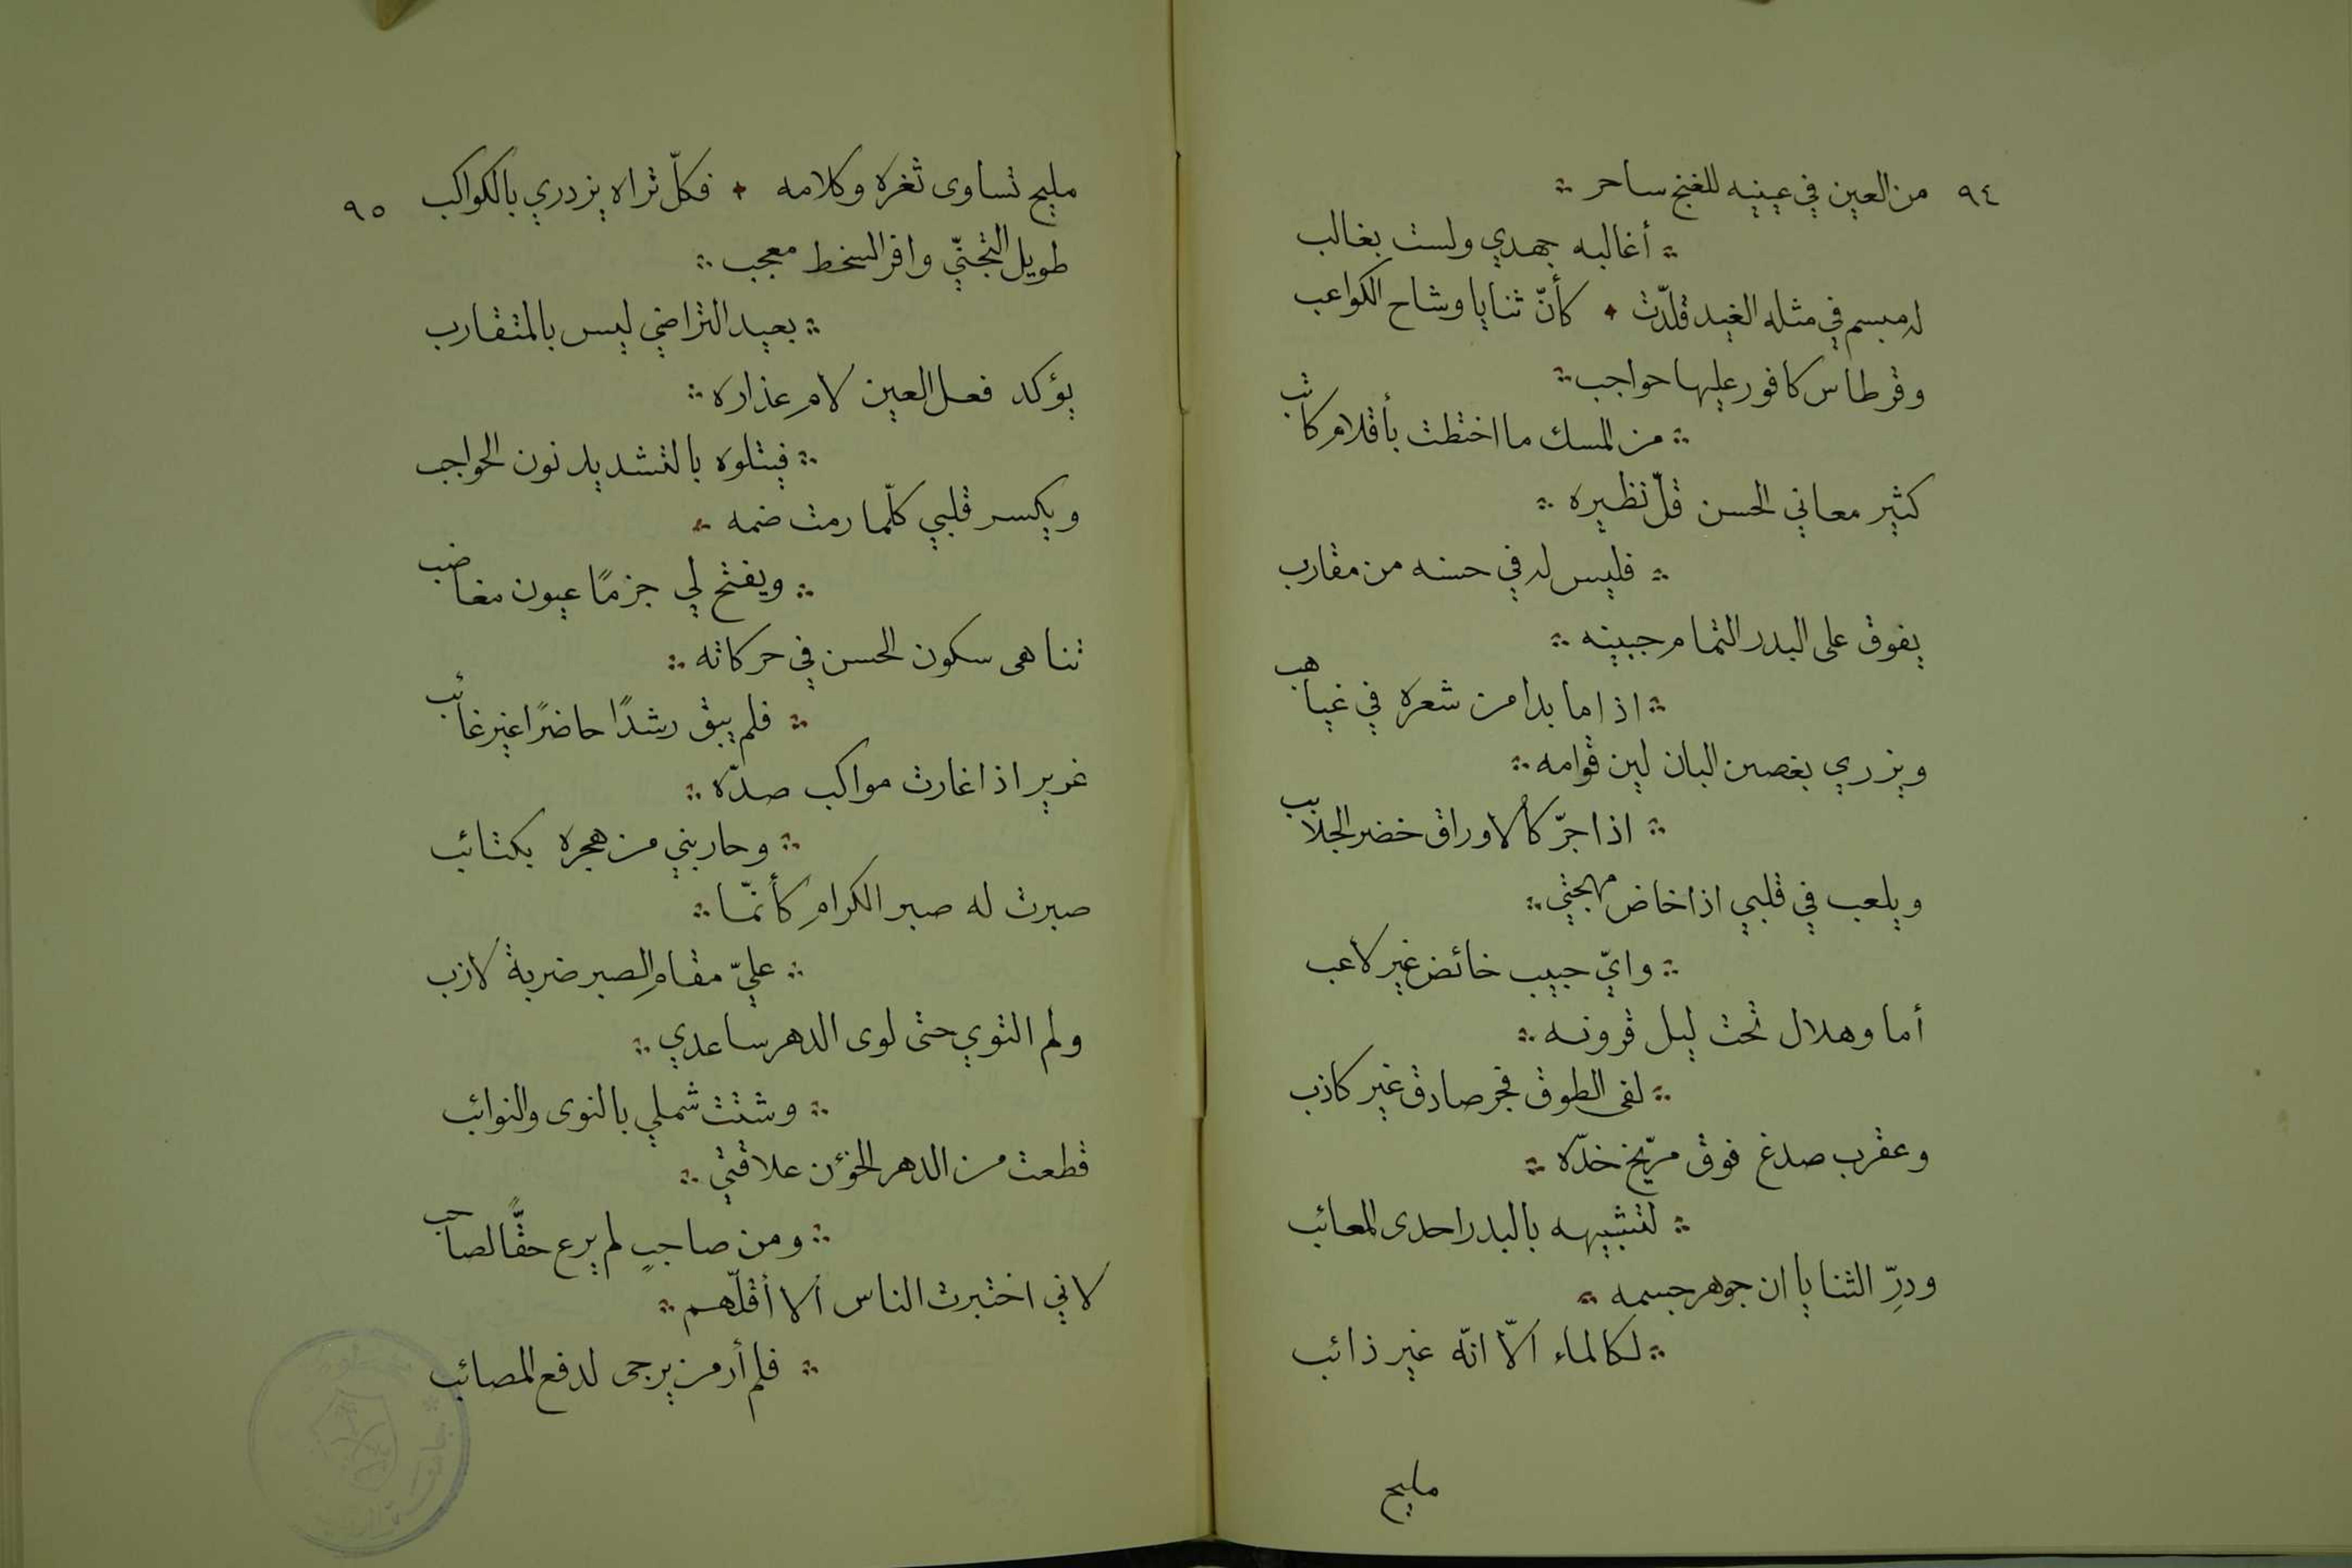 ٩٤ من العين في عينيه للغنج ساحر
أغالبه جهدي ولست بغالب
له مبسم في مثله الغيد قلّدت كأنّ ثنايا وشاح الكواعب
وقرطاس كافور عليها حواجب
من المسك ما اختطت بأقلام كاتب
كثير معاني الحسن قلّ نظيره
فليس له في حسنه من مقارب
يفوق على البدر التمام جبينه
اذا ما بدا من شعره في غياهب
ويزري بغصن البان لين قوامه
اذا جرّ كالاوراق خضر الجلابب
ويلعب في قلبي اذا خاض مهجتي
وايّ حبيب خائض غير لاعب
أما وهلال تحت ليل قرونه
لفى الطوق فجر صادق غير كاذب
وعقرب صدغ فوق مرّيخ خدّه
لتشبيهه بالبدر احدى المعائب
ودرِّ الثنايا ان جوهر جسمه
لكالماء الّا انّه غير ذائب
مليح
مليح تساوى ثغره وكلامه فكلّ تراه يزدري بالكواكب ٩٥
طويل التجنّي وافر السخط معجب
بعيد التراضي ليس بالمتقارب
يؤكد فعل العين لامِ عذاره
فيتلوه بالتشديد نون الحواجب
ويكسر قلبي كلّما رمت ضمه
ويفتح لي جزمًا عيون مغاضب
تناهى سكون الحسن في حركاته
فلم يبق رشدًا حاضرًا غير غائب
غرير اذا غارت مواكب صدّه
وحاربني من هجره بكتائب
صبرت له صبر الكرامِ كأنّما
عليّ مقام الصبر ضربة لازب
ولم التوي حتى لوى الدهر ساعدي
وشتت شملي بالنوى والنوائب
قطعت من الدهر الخؤن علاقتي
ومن صاحبٍ لم يرع حقًّا لصاحب
لاني اختبرت الناس ألا أقلّهم
فلم أر من يرجى لدفع المصائب